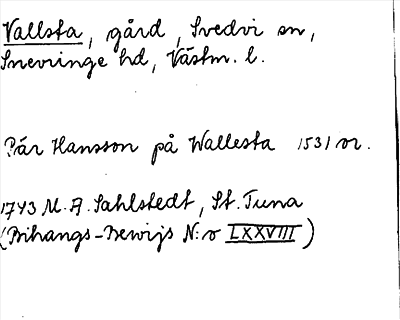 Vallsta, gård, Svedvi sn,
Snevringe hd, Västm. l.
Pär Hansson på Wallesta 1531 or.
1743 M. A. Sahlstedt, St. Tuna
(Bihangs-Bewijs N:o LXXVIII)